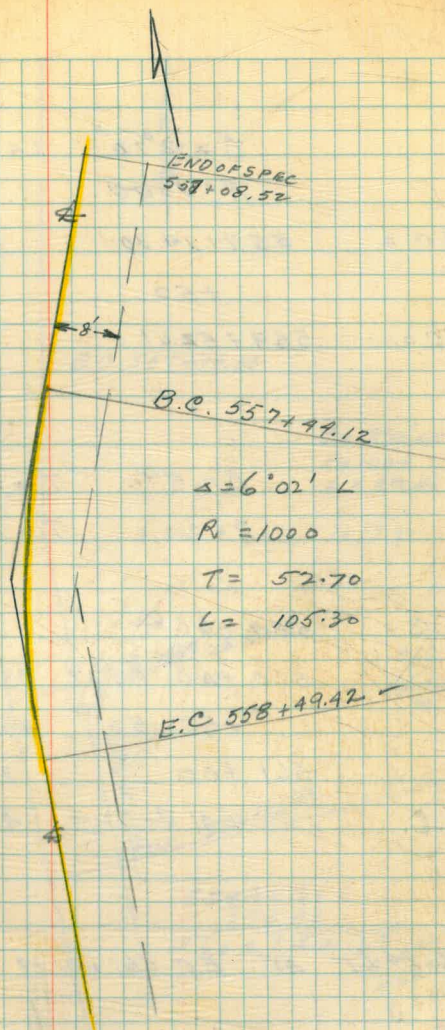 END OF SPEC
557+08.52
℄
8'
B.C. 557+44.12
Δ=6°02' L
R =1000
T= 52.70
L= 105.30
E.C 558+49.42 ✓
℄